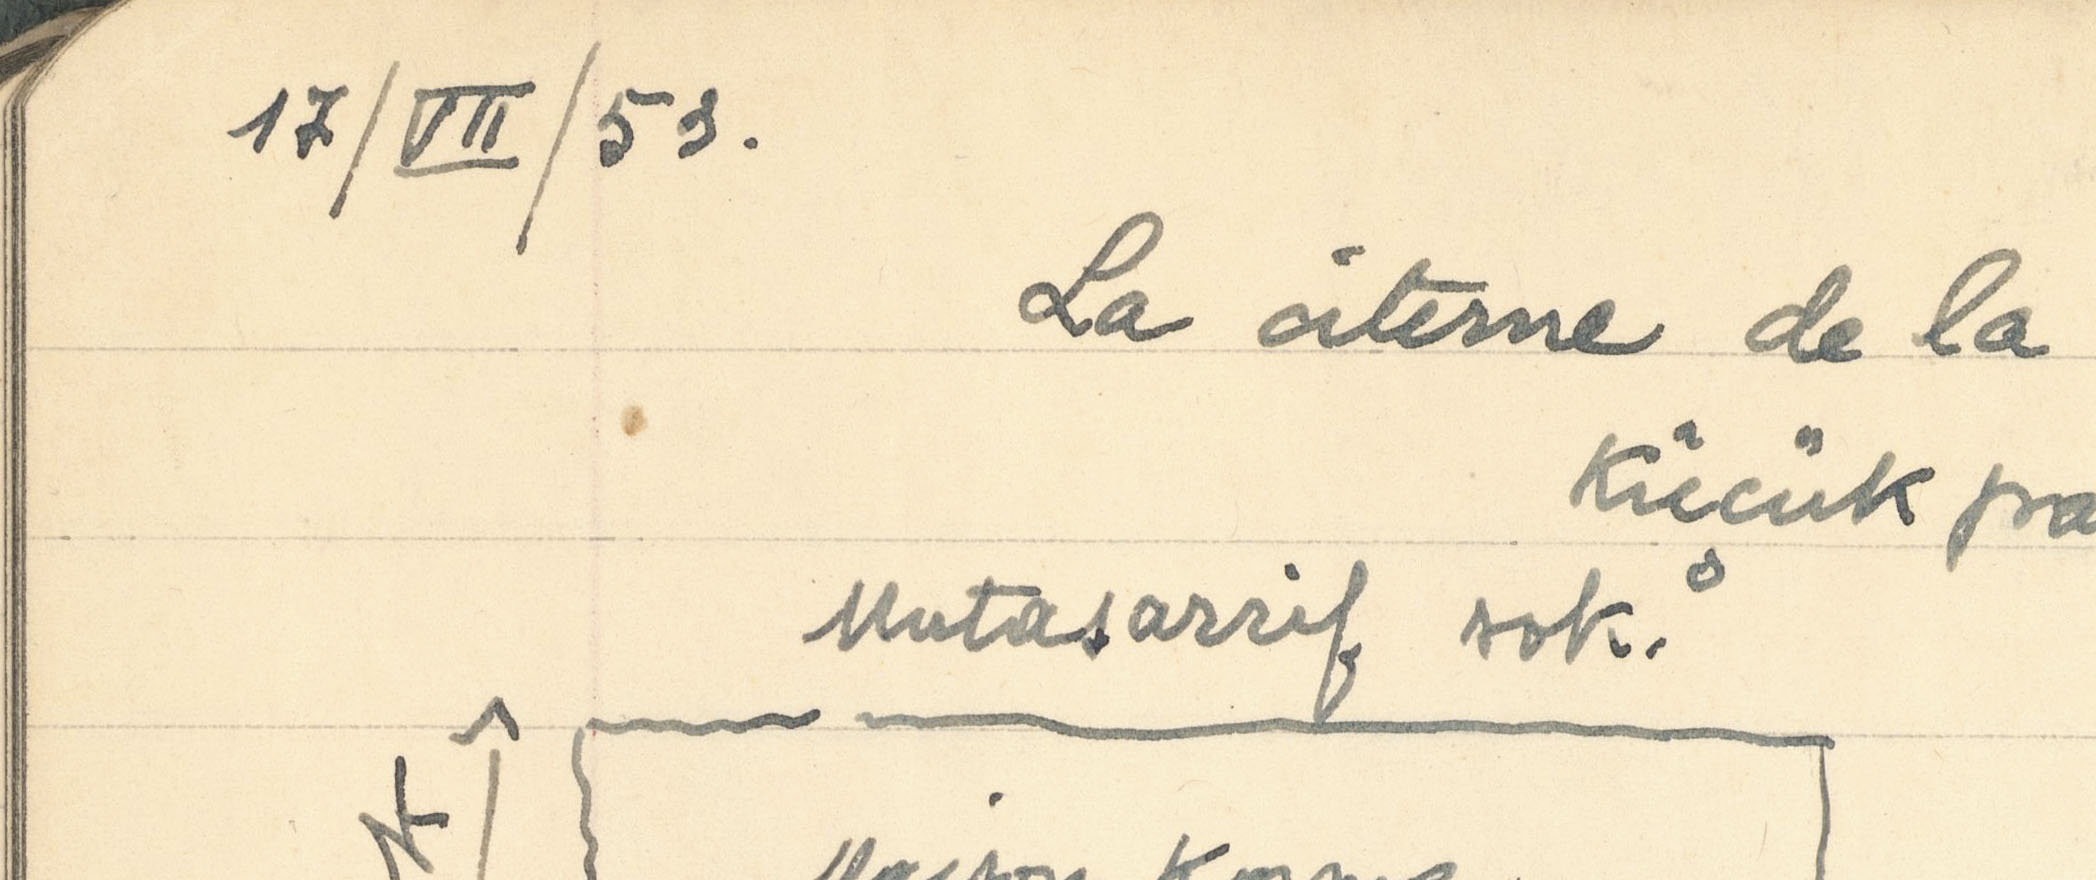 17/VII/53.
La citerne de la
Kücük
Mutasarrif sok.
N
Maison